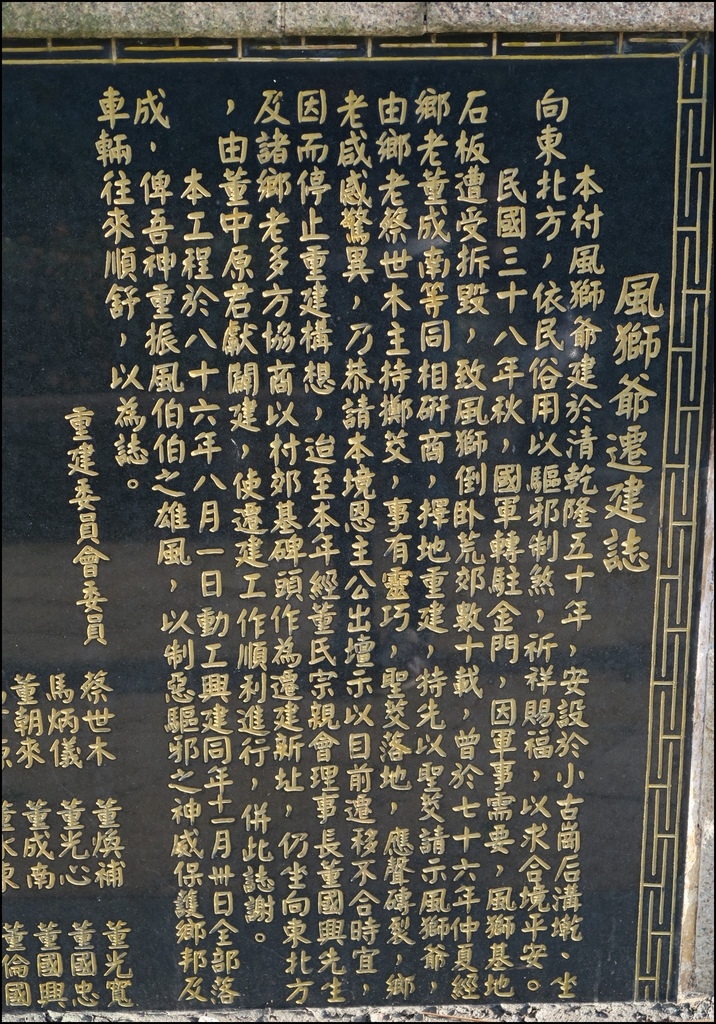 風獅爺遷建誌
本村風獅爺建於清乾隆五十年，安設於小古崗后溝墘、坐
向東北方，依民俗用以驅邪制煞，祈祥賜福，以求合境平安。
民國三十八年秋，國軍轉駐金門，因軍事需要，風獅基地
石板遭受拆毀，致風獅倒卧荒郊數十載，曾於七十六年仲夏經
鄉老董成南等同相研商，擇地重建，特先以聖筊請示風獅爺，
由鄉老蔡世木主持擲筊，事有靈巧，聖筊落地，應聲磚裂，鄉
老咸感驚異，乃恭請本境恩主公出壇示以目前遷移不合時宜，
因而停止重建構想，迨至本年經董氏宗親會理事長董國興先生
及諸鄉老多方協商以村郊基碑頭作為遷建新址，仍坐向東北方
，由董中原君獻闢建，使遷建工作順利進行，併此誌謝。
本工程於八十六年八月一日動工興建同年十一月卅日全部落
成，俾吾神重振風伯伯之雄風，以制惡驅邪之神威保護鄉邦及
車輛往來順舒，以為誌。
重建委員會委員 蔡世木 董煥補 董光寬
馬炳儀 董光心 董國忠
董朝來 董成南 董國興
董倫國